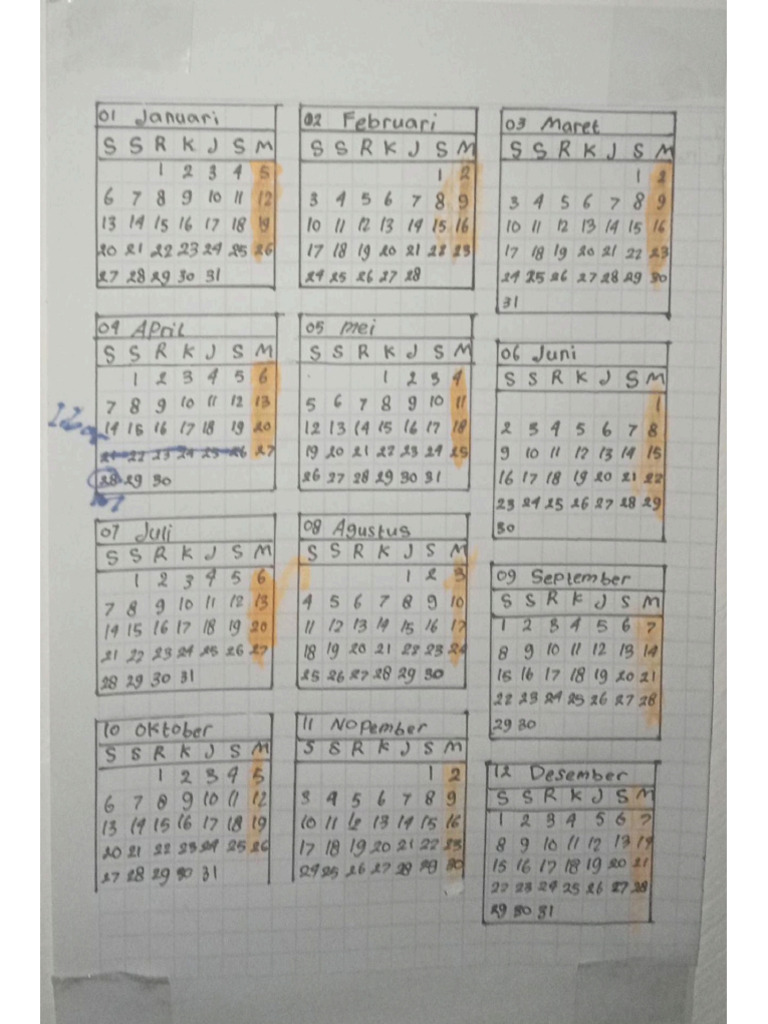 01 Januari
S S R K J S M
1 2 3 4 5
6 7 8 9 10 11 12
13 14 15 16 17 18 19
20 21 22 23 24 25 26
27 28 29 30 31
02 Februari
S S R K J S M
1 2
3 4 5 6 7 8 9
10 11 12 13 14 15 16
17 18 19 20 21 22 23
24 25 26 27 28
03 Maret
S S R K J S M
1 2
3 4 5 6 7 8 9
10 11 12 13 14 15 16
17 18 19 20 21 22 23
24 25 26 27 28 29 30
31
04 April
S S R K J S M
1 2 3 4 5 6
7 8 9 10 11 12 13
14 15 16 17 18 19 20
21 22 23 24 25 26 27
28 29 30
05 Mei
S S R K J S M
1 2 3 4
5 6 7 8 9 10 11
12 13 14 15 16 17 18
19 20 21 22 23 24 25
26 27 28 29 30 31
06 Juni
S S R K J S M
1
2 3 4 5 6 7 8
9 10 11 12 13 14 15
16 17 18 19 20 21 22
23 24 25 26 27 28 29
30
07 Juli
S S R K J S M
1 2 3 4 5 6
7 8 9 10 11 12 13
14 15 16 17 18 19 20
21 22 23 24 25 26 27
28 29 30 31
08 Agustus
S S R K J S M
1 2 3
4 5 6 7 8 9 10
11 12 13 14 15 16 17
18 19 20 21 22 23 24
25 26 27 28 29 30
09 September
S S R K J S M
1 2 3 4 5 6 7
8 9 10 11 12 13 14
15 16 17 18 19 20 21
22 23 24 25 26 27 28
29 30
10 Oktober
S S R K J S M
1 2 3 4 5
6 7 8 9 10 11 12
13 14 15 16 17 18 19
20 21 22 23 24 25 26
27 28 29 30 31
11 Nopember
S S R K J S M
1 2
3 4 5 6 7 8 9
10 11 12 13 14 15 16
17 18 19 20 21 22 23
24 25 26 27 28 29 30
12 Desember
S S R K J S M
1 2 3 4 5 6 7
8 9 10 11 12 13 14
15 16 17 18 19 20 21
22 23 24 25 26 27 28
29 30 31